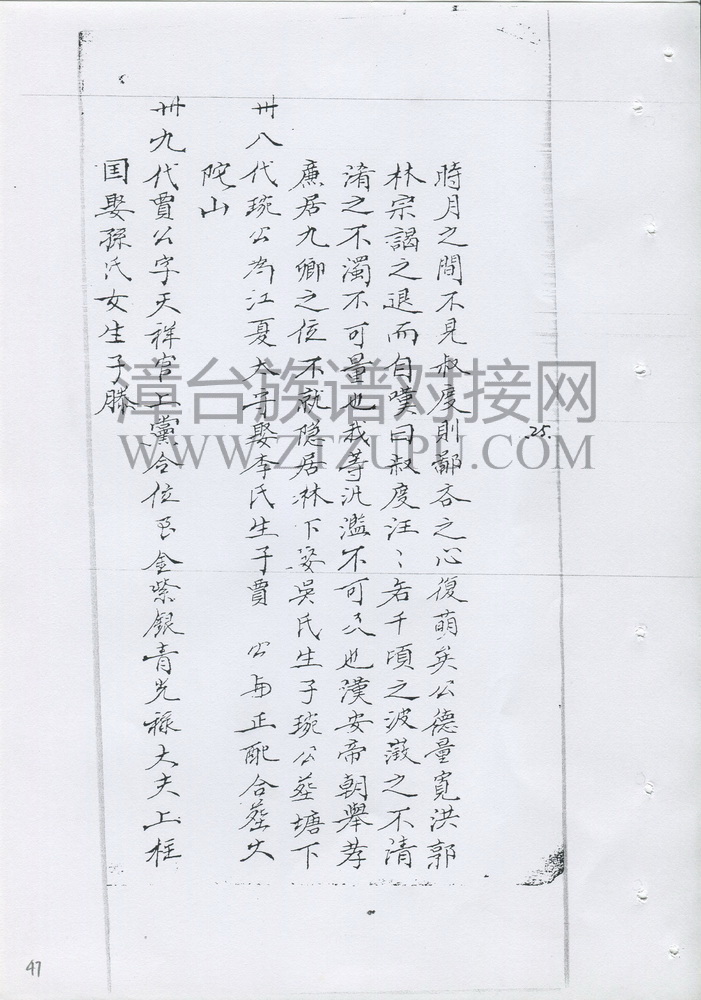 25.
時月之間不見叔度則鄙吝之心復萌矣公德量寬洪郭
林宗謁之退而自嘆曰叔度汪〻若千頃之波澂之不清
淆之不濁不可量也我等汎濫不可及也漢安帝朝舉孝
廉居九卿之位不就隐居淋下娶吳氏生子琬公塟塘下
卅八代琬公為江夏太守娶李氏生子賈 公与正配合塟火
陀山
卅九代賈公字天祥官上黨令位至金紫銀青光祿大夫上柱
国娶孫氏女生子滕
漳台族谱对接网
WWW.ZTZUPU.COM
47